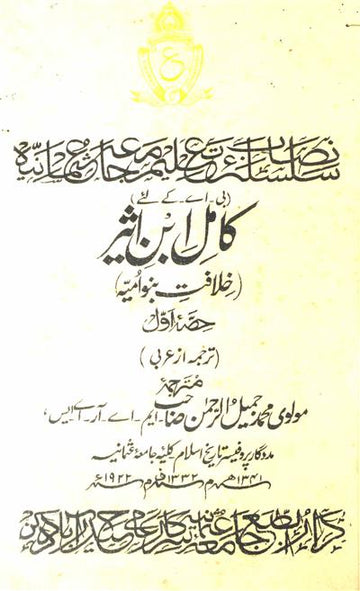 سلسلۂ نصاب تعلیم جامعۂ عثمانیہ
(بی۔اے کے لئے)
کامل ابن اثیر
(خلافتِ بنو امیہ)
حصۂ اوّل
(ترجمہ از عربی)
مترجمۂ
مولوی محمد جمیل الرحمٰن صاحب ایم۔اے۔آر۔اے۔ایس،
مددگار پروفیسر تاریخ اسلام کلیۂ جامعۂ عثمانیہ
۱۳۴۱ھ م ۱۳۳۲ف م ۱۹۲۲ء
دار الطبع جامعہ عثمانیہ سرکار عالی حیدرآباد دکن